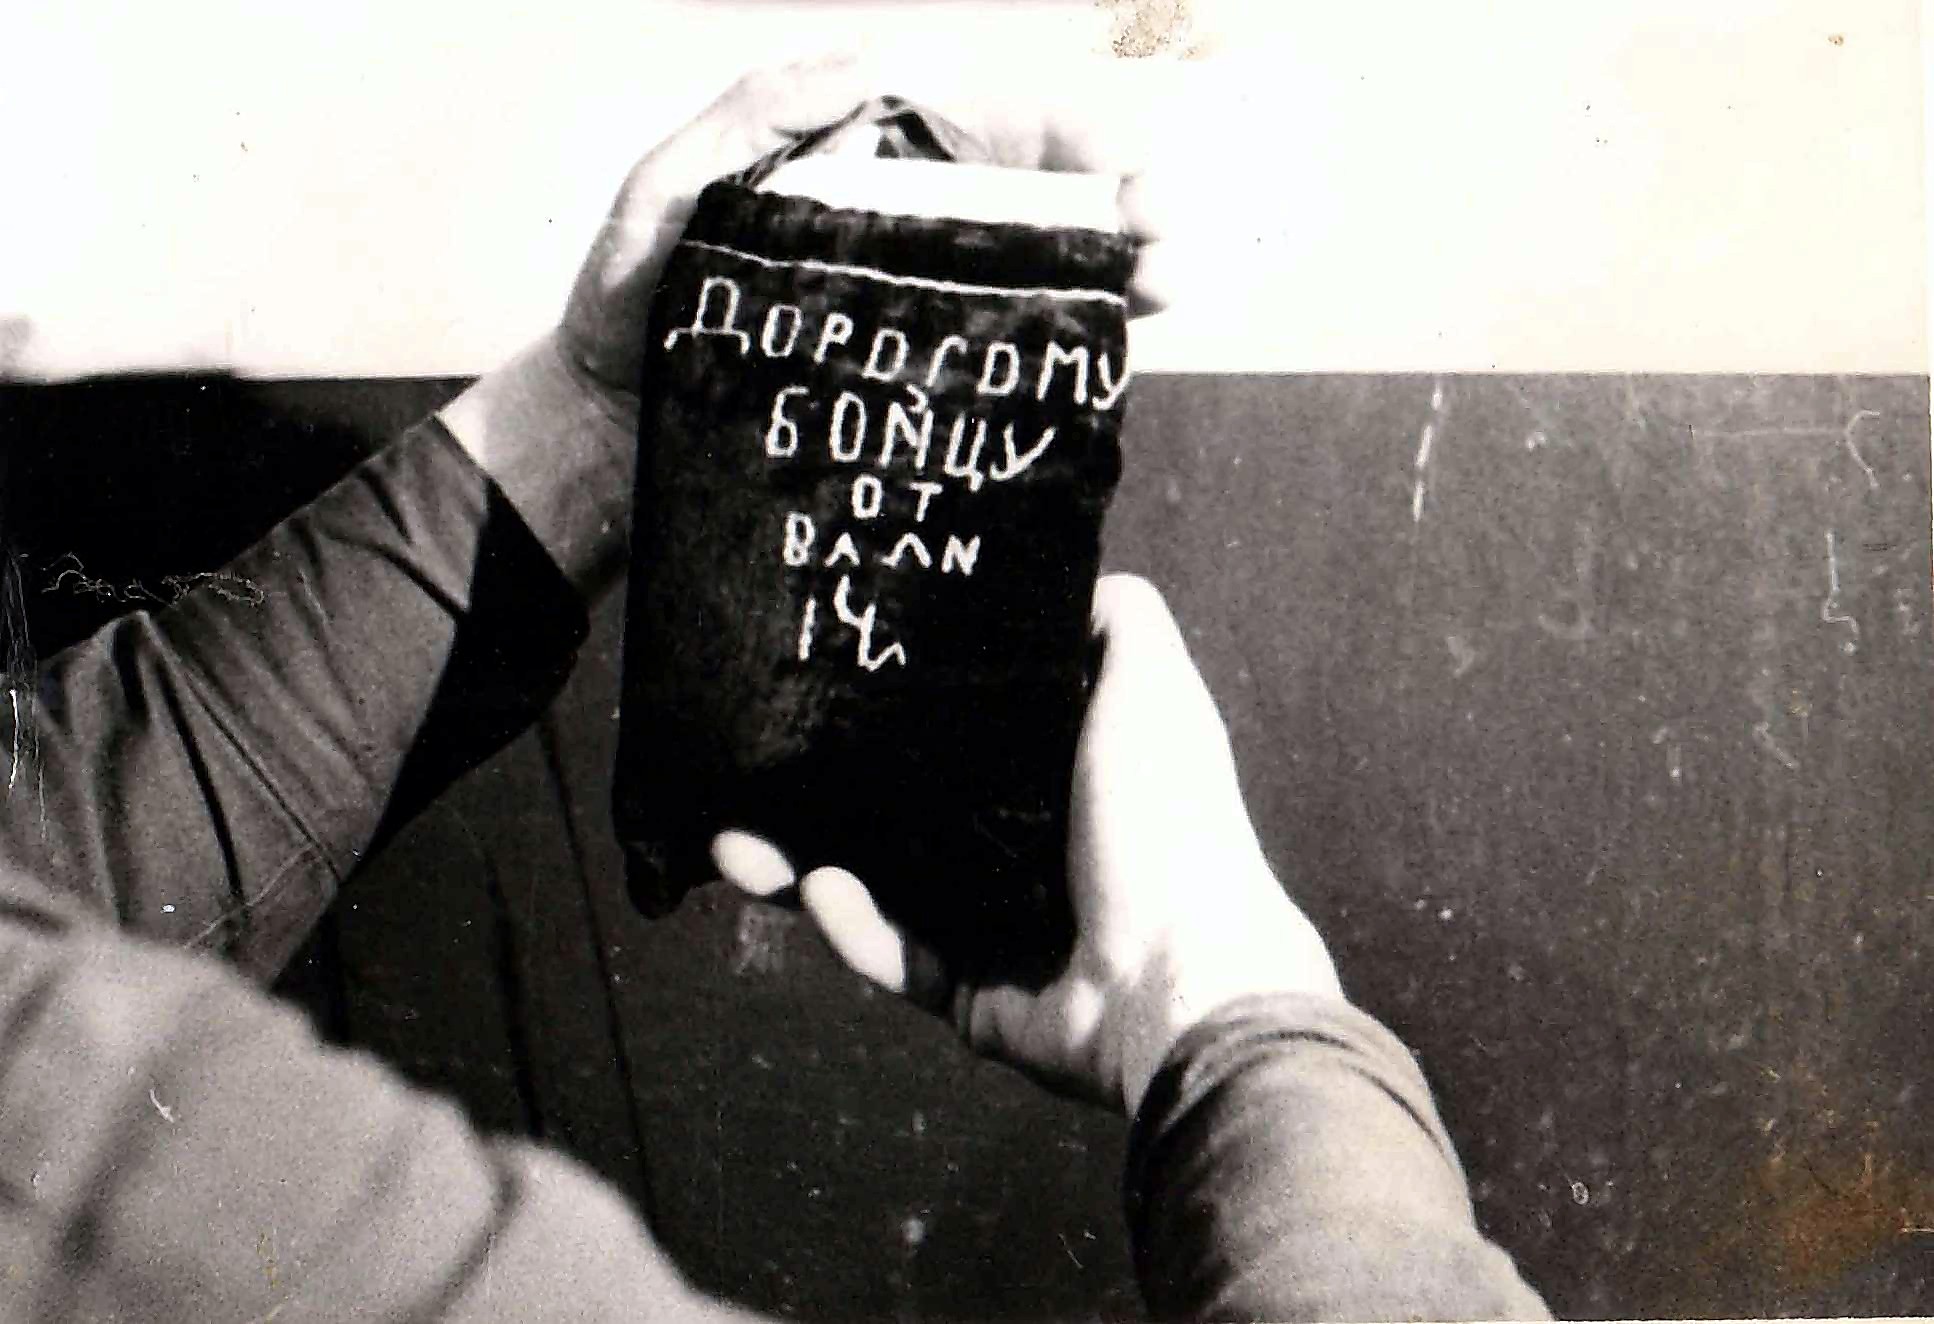 ДОРОГОМУ
БОЙЦУ
ОТ
ВАЛИ
14